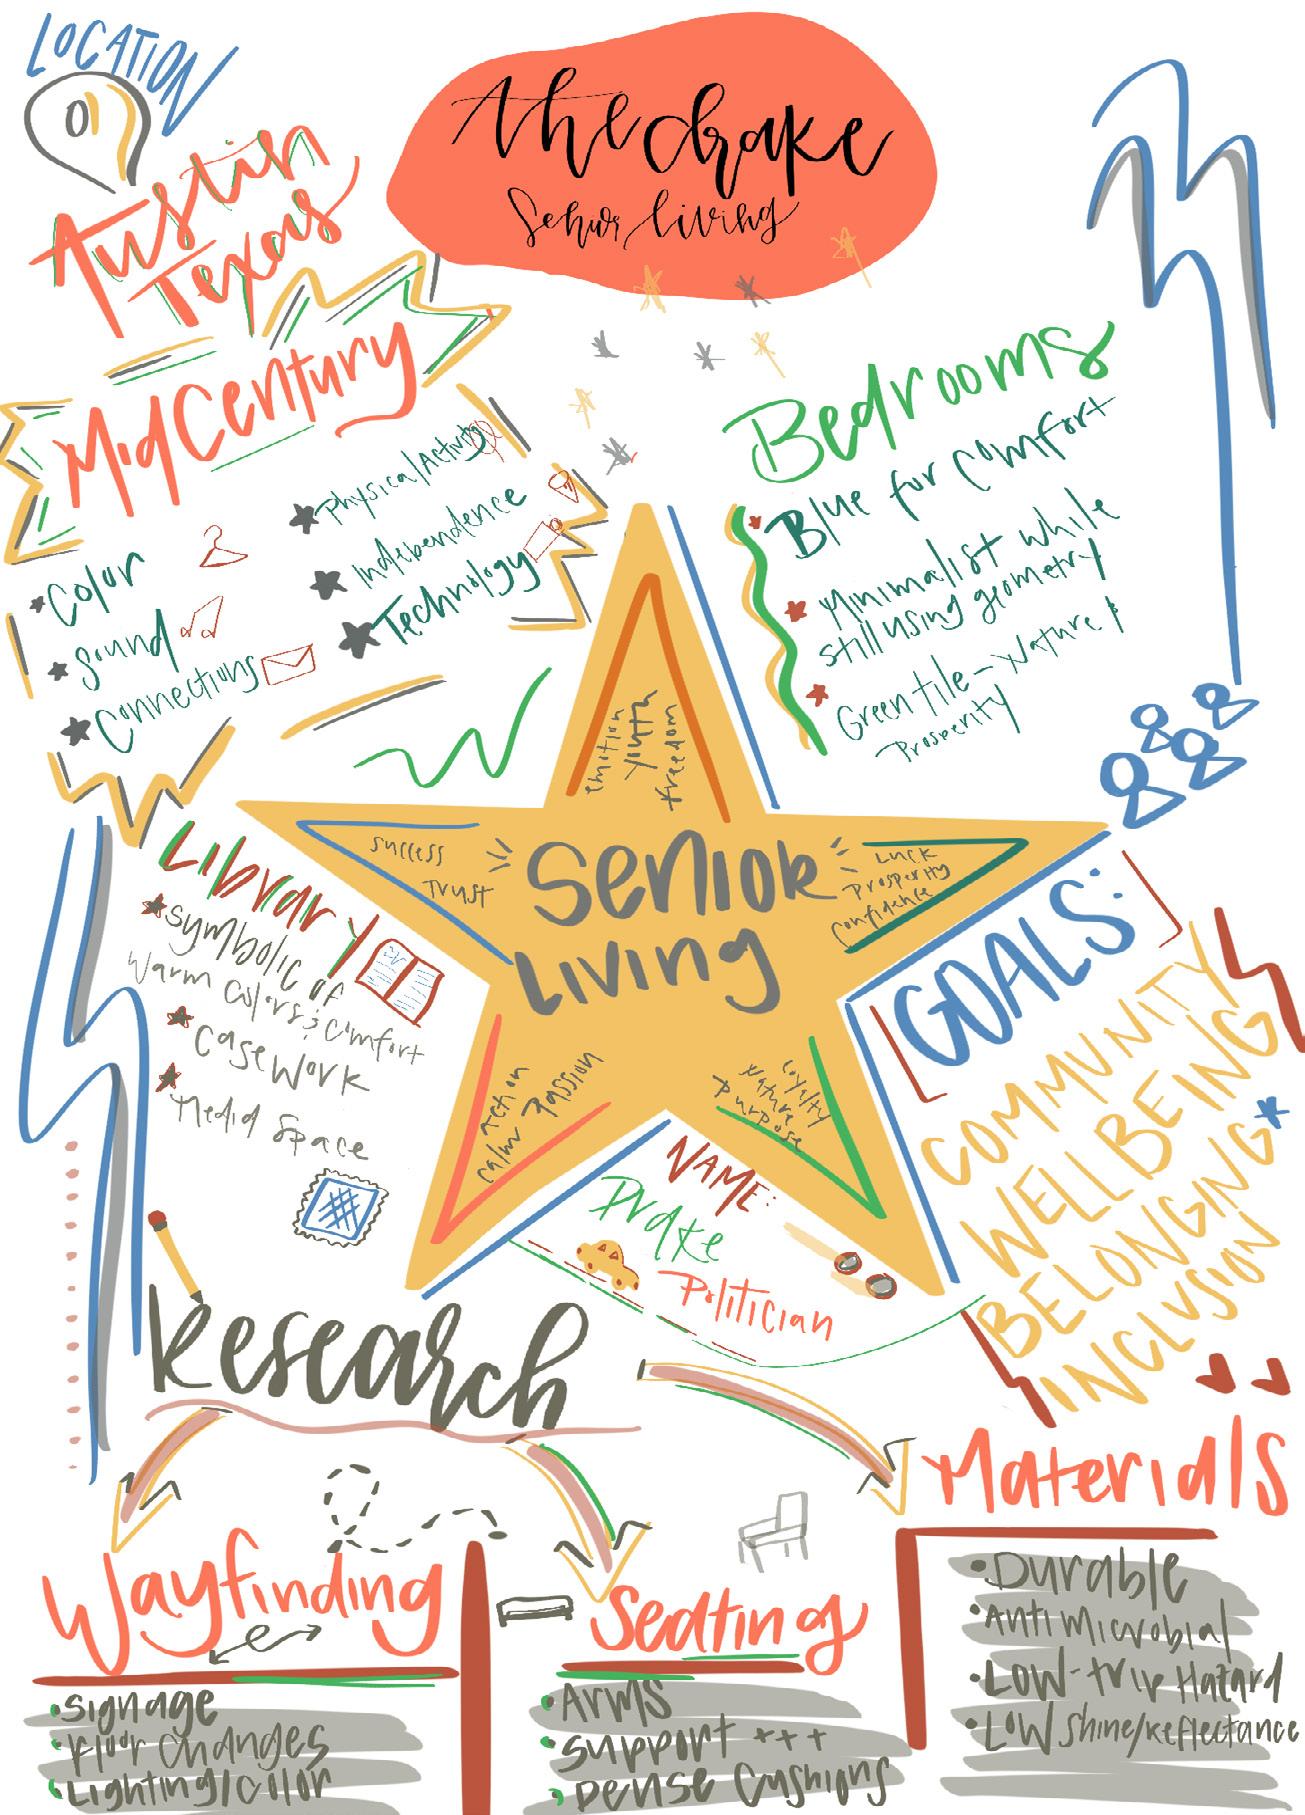 LOCATION
Austin
Texas
the drake
Senior living
MidCentury
Color
Sound
Connections
Physical Activity
Independence
Technology
Bedrooms
Blue for comfort
Minimalist while
still using geometry
Green tile - Nature &
Prosperity
emotion
youth
freedom
success
Trust
SENIOR
LIVING
Luck
Prosperity
Confidence
Action
calm Passion
Loyalty
Nature
purpose
Library
symbolic of
Warm Colors & Comfort
CaseWork
Media Space
GOALS:
COMMUNITY
WELL BEING
BELONGING*
INCLUSION
NAME:
Drake
Politician
Research
Wayfinding
Signage
Floor Changes
Lighting/Color
Seating
Arms
Support +++
Dense Cushions
Materials
Durable
AntiMicrobial
Low-trip Hazard
Low Shine/Reflectance